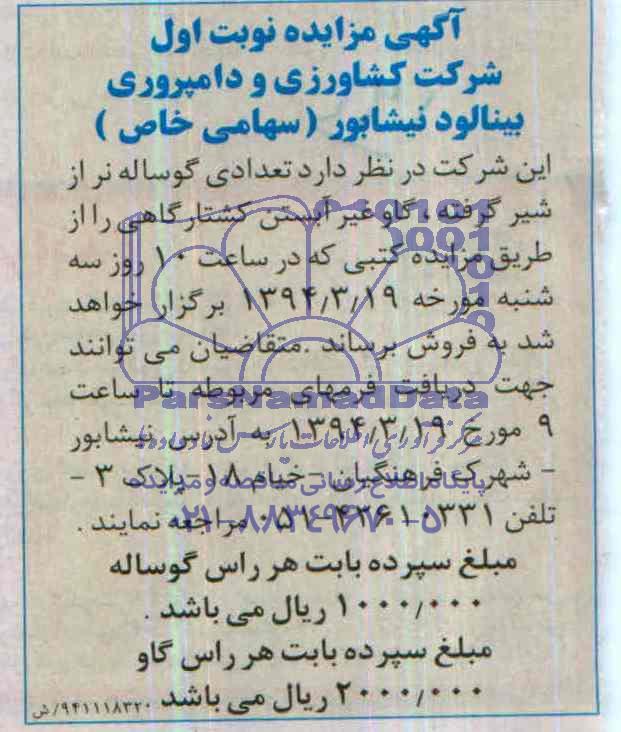 آگهی مزایده نوبت اول
شرکت کشاورزی و دامپروری
بینالود نیشابور (سهامی خاص)
این شرکت در نظر دارد تعدادی گوساله نر از
شیر گرفته ، گاو غیر آبستن کشتارگاهی را از
طریق مزایده کتبی که در ساعت ۱۰ روز سه
شنبه مورخه ۱۳۹۴/۳/۱۹ برگزار خواهد
شد به فروش برساند .متقاضیان می توانند
جهت دریافت فرمهای مربوطه تا ساعت
۹ مورخ ۱۳۹۴/۳/۱۹ به آدرس نیشابور
– شهرک فرهنگیان – خیام ۱۸ – پلاک ۳ –
تلفن ۴۲۶۱۵۳۳۱-۰۵۱ مراجعه نمایند .
مبلغ سپرده بابت هر راس گوساله
۱۰۰۰/۰۰۰ ریال می باشد .
مبلغ سپرده بابت هر راس گاو
۲۰۰۰/۰۰۰ ریال می باشد
۹۴۱۱۱۸۳۲۰/ش
ParsNamadData
پایگاه اطلاع رسانی مناقصه و مزایده
۰۲۱-۸۸۳۴۹۶۷۰-۵